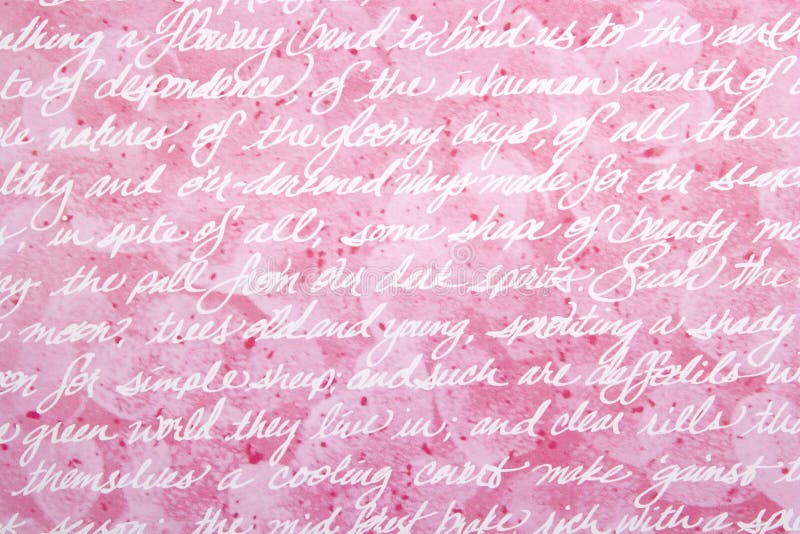 athing a flowery band to bind us to the earth
te of despondence, of the inhuman dearth of
le natures, of the gloomy days, of all the
lthy and o'er-darkened ways made for our searc
s, in spite of all, some shape of beauty mo
ay the pall from our dark spirits. Such the
moon, trees old and young, sprouting a shady
on for simple sheep; and such are daffodils w
e green world they live in; and clear rills tha
themselves a cooling covert make 'gainst t
t season: the mid forest brake, rich with a spr